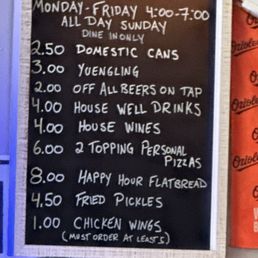 MONDAY-FRIDAY 4:00-7:00
ALL DAY SUNDAY
DINE IN ONLY
2.50 DOMESTIC CANS
3.00 YUENGLING
2.00 OFF ALL BEERS ON TAP
4.00 HOUSE WELL DRINKS
4.00 HOUSE WINES
6.00 2 TOPPING PERSONAL
PIZZAS
8.00 HAPPY HOUR FLATBREAD
4.50 FRIED PICKLES
1.00 CHICKEN WINGS
(MUST ORDER AT LEAST 5)